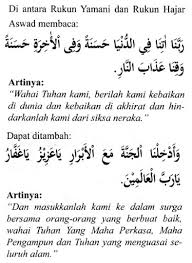 Di antara Rukun Yamani dan Rukun Hajar
Aswad membaca:
رَبَّنَا أٰتِنَا فِي الدُّنْيَا حَسَنَةً وَفِي الْأٰخِرَةِ حَسَنَةً
وَقِنَا عَذَابَ النَّارِ.
Artinya:
"Wahai Tuhan kami, berilah kami kebaikan
di dunia dan kebaikan di akhirat dan hin-
darkanlah kami dari siksa neraka."
Dapat ditambah:
وَأَدْخِلْنَا الْجَنَّةَ مَعَ الْأَبْرَارِ يَاعَزِيْزُ يَاغَفَّارُ
يَارَبَّ الْعَالَمِيْنَ.
Artinya:
"Dan masukkanlah kami ke dalam surga
bersama orang-orang yang berbuat baik,
wahai Tuhan Yang Maha Perkasa, Maha
Pengampun dan Tuhan yang menguasai se-
luruh alam."